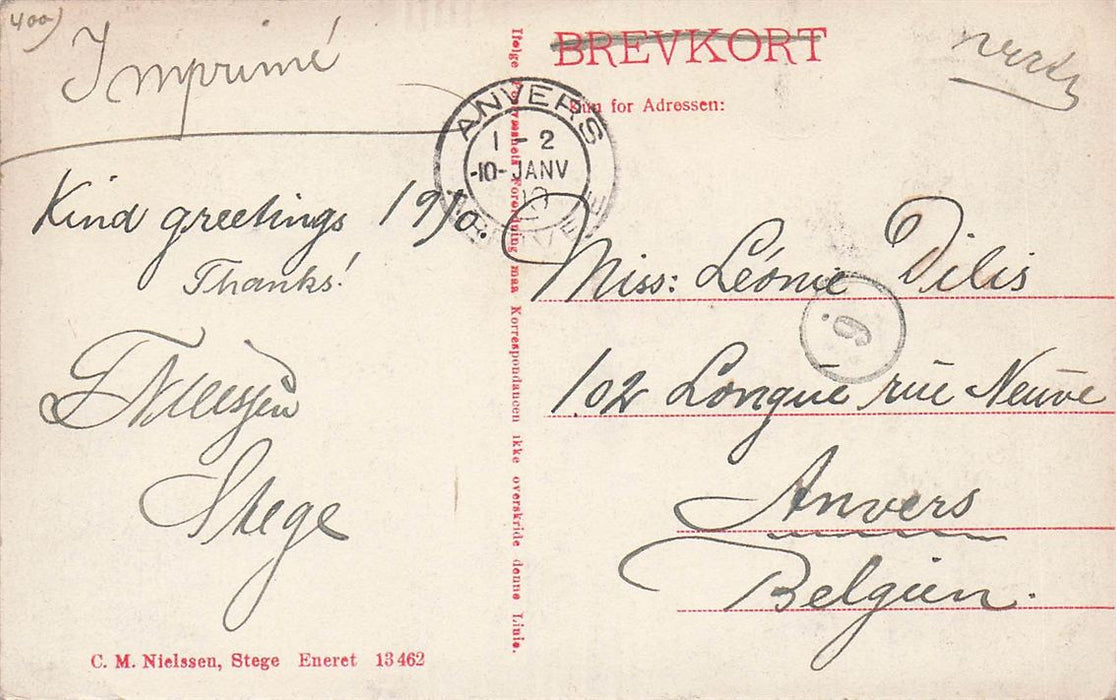 400)
Imprimé
Kind greetings 1910.
Thanks!
Stege
C. M. Nielssen, Stege Eneret 13462
Ifølge Postvæsenets Forordning maa Korrespondancen ikke overskride denne Linie.
BREVKORT
Kun for Adressen:
ANVERS
1-2
-10-JANV
10
Miss: Léonie Dilis
9
102 Longue rue Neuve
Anvers
Belgien.